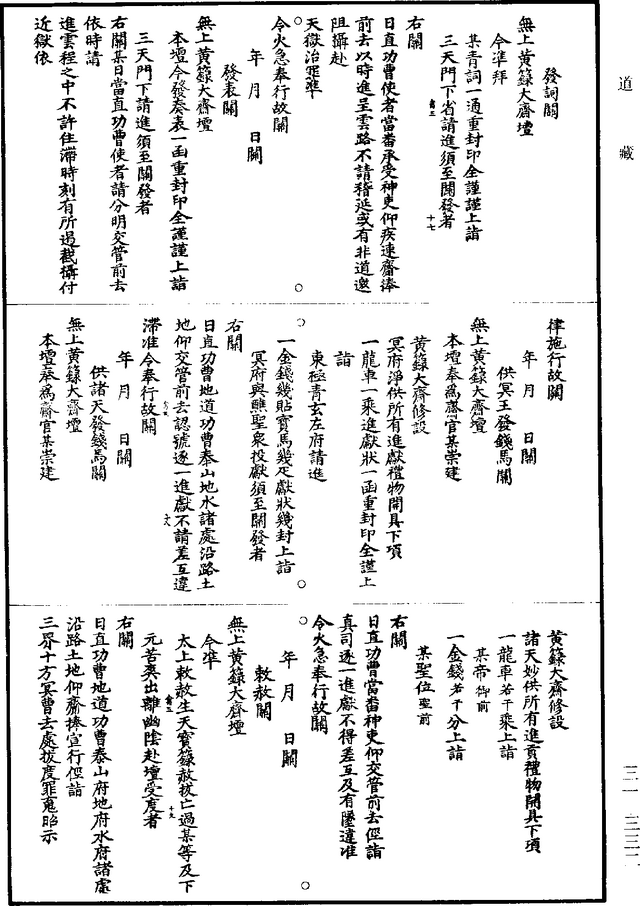 道藏
發詞關
無上黃籙大齋壇
今準拜
某青詞一通重封印全謹謹上詣
三天門下省請進須至關發者
右關
日直功曹使者當番承受神吏仰疾速齎捧
前去以時進呈雲路不請稽延或有非道邀
阻攝赴
天獄治罪準
令火急奉行故關
年 月 日關
發表關
無上黃籙大齋壇
本壇今發奏表一函重封印全謹謹上詣
三天門下請進須至關發者
右關某日當直功曹使者請分明交管前去
依時請
進雲程之中不許住滯時刻有所過截攝付
近獄依
律施行故關
年 月 日關
供冥王發錢馬關
無上黃籙大齋壇
本壇奉為齋官某崇建
黃籙大齋修設
冥府淨供所有進獻禮物開具下項
一龍車一乘進獻狀一函重封印全謹上
詣
東極青玄左府請進
一金錢幾貼寶馬幾疋獻狀幾封上詣
冥府與醮聖衆投獻須至關發者
右關
日直功曹地道功曹泰山地水諸處沿路土
地仰交管前去認號逐一進獻不請差互違
滯准令奉行故關
年 月 日關
供諸天發錢馬關
無上黃籙大齋壇
本壇奉為齋官某崇建
黃籙大齋修設
諸天妙供所有進貢禮物開具下項
一龍車若干乘上詣
某帝御前
一金錢若干分上詣
某聖位聖前
右關
日直功曹當番神吏仰交管前去徑詣
真司逐一進獻不得差互及有墜違准
令火急奉行故關
年 月 日關
敕赦關
無上黃籙大齋壇
今準
太上敕赦生天寶籙赦拔亡過某等及下
元苦爽出離幽陰赴壇受度者
右關
日直功曹地道功曹泰山府地府水府諸處
沿路土地仰齎捧宣行徑詣
三界十方冥曹去處拔度罪魂昭示
三一 三三二